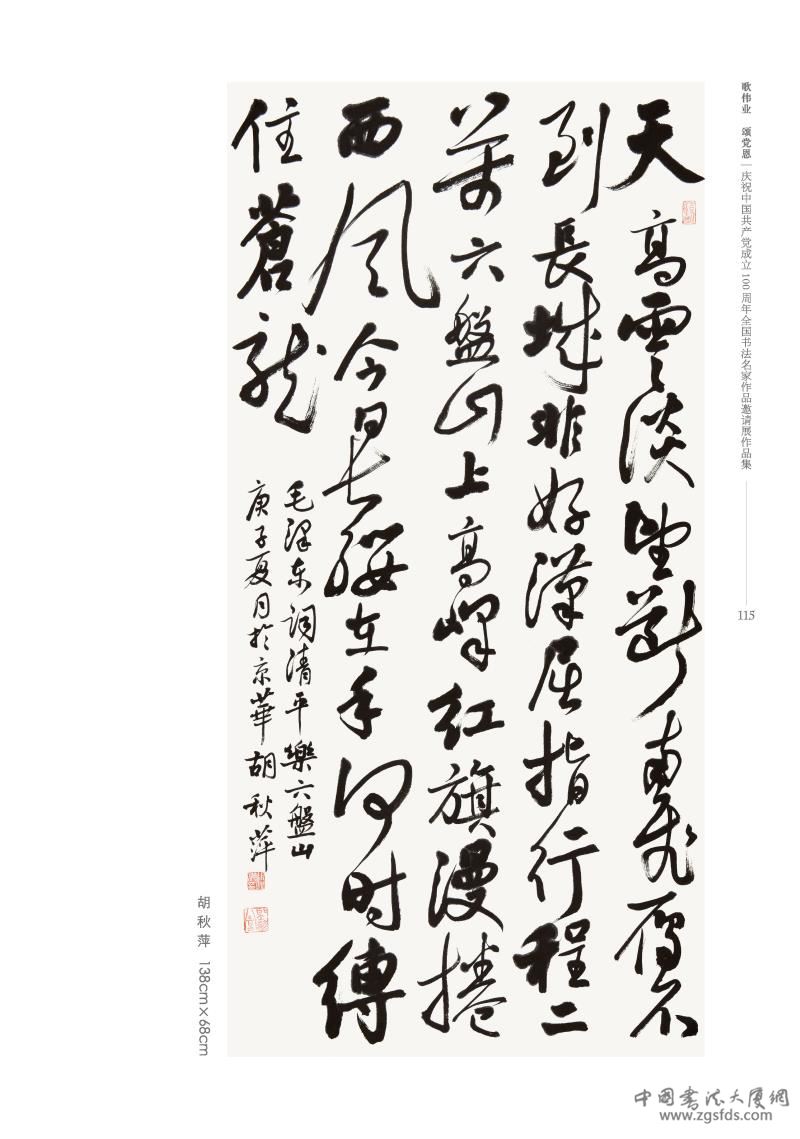 歌伟业 颂党恩|庆祝中国共产党成立100周年全国书法名家作品邀请展作品集
115
天高雲淡望斷南飛雁不
到長城非好漢屈指行程二
萬六盤山上高峰紅旗漫捲
西風今日長纓在手何时縛
住蒼龍
毛澤东詞清平樂六盤山
庚子夏月於京華胡秋萍
胡秋萍 138cm×68cm
中国书法大厦網
www.zgsfds.com